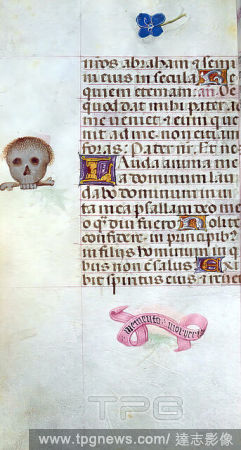 nr̃os abraham ⁊ semi
ni eius in secula. 
quiem eternam.
quod dat mihi pater, ad
me veniet, ⁊ eum qui ve
nit ad me, non eiiciam
foras. 
Lauda anima me
a dominum lau
dabo dominum in ui
ta mea psallam deo me
o qͣdiu fuero. Nolite
confidere in principib⁹
in filiis hominum in qui
bus non ẽ salus. Exi
bit spiritus eius ⁊ reuer
memento
TPG
www.tpgnews.com/ 達志影像